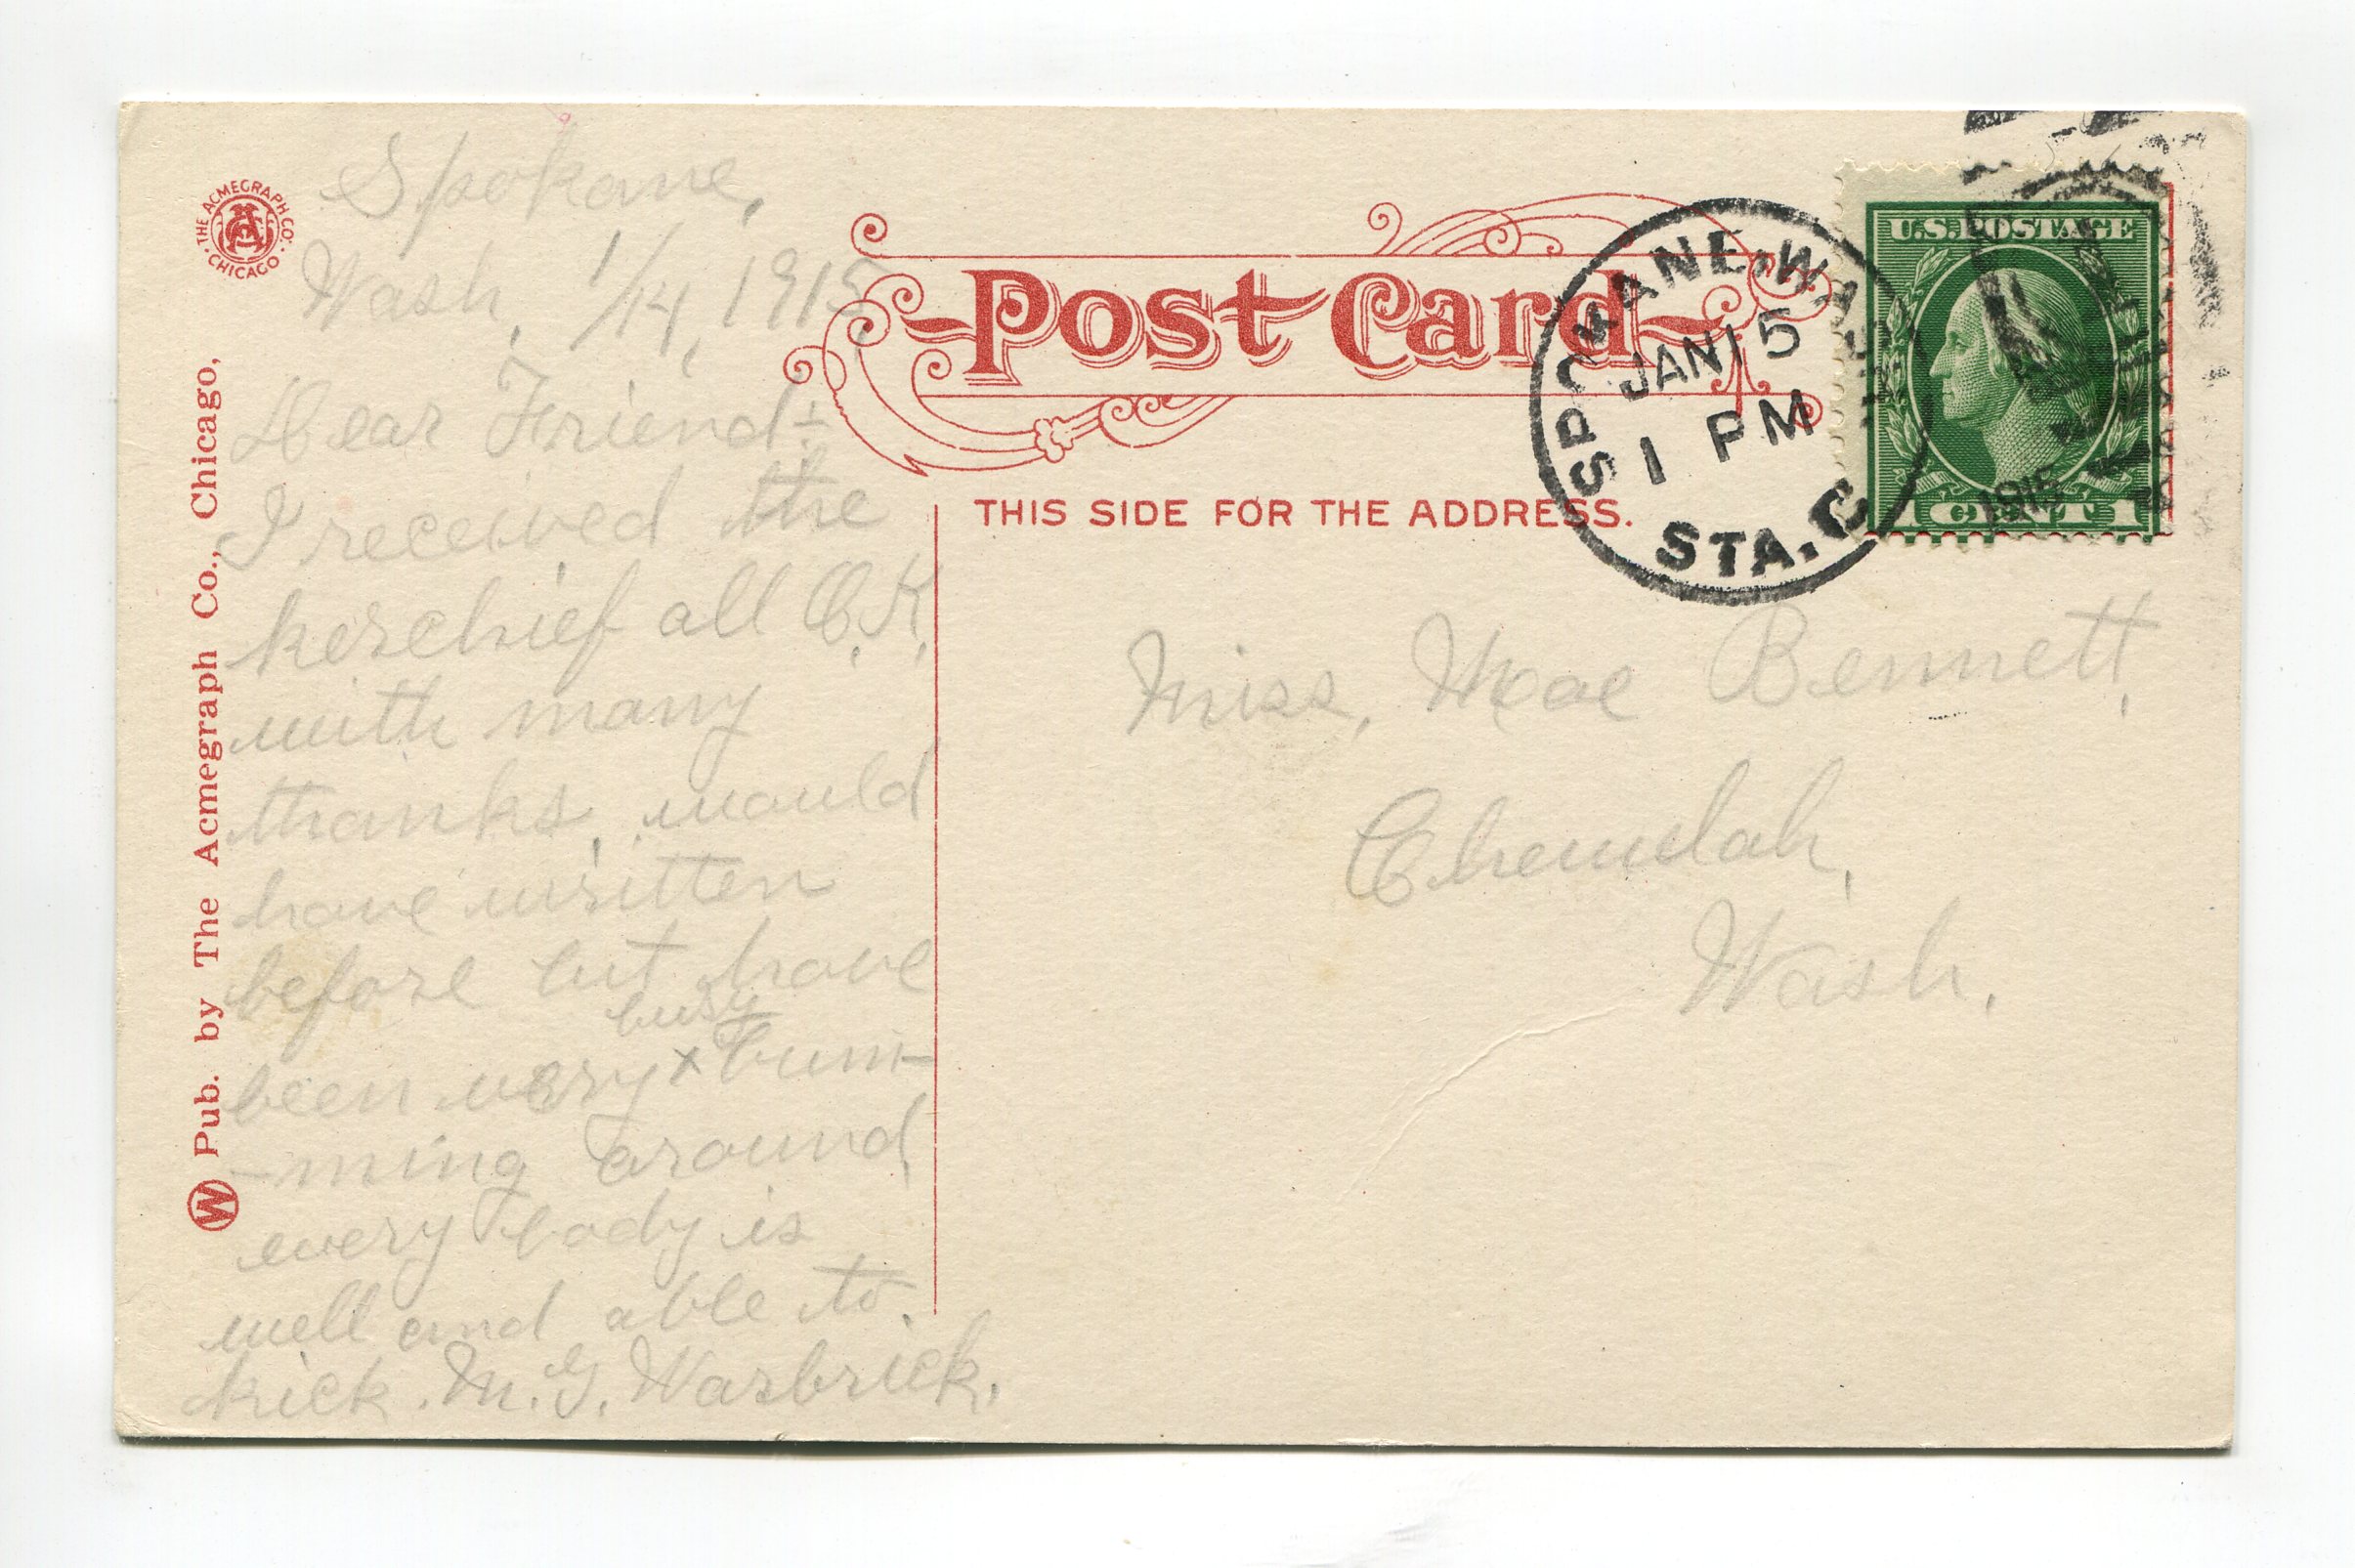 THE ACMEGRAPH CO.
CHICAGO
Pub. by The Acmegraph Co., Chicago,
W
Spokane,
Wash, 1/14, 1915,
Dear Friend:-
I received the
kerchief all O.K.
with many
thanks, would
have written
before but have
busy
been very x bum-
-ming around,
every body is
well and able to.
kick. M. G. Warbrick.
Post Card
THIS SIDE FOR THE ADDRESS.
SPOKANE, WASH.
JAN 15
1 PM
STA. C
U.S. POSTAGE
1 CENT 1
1915
Miss, Mae Bennett,
Chewelah,
Wash.